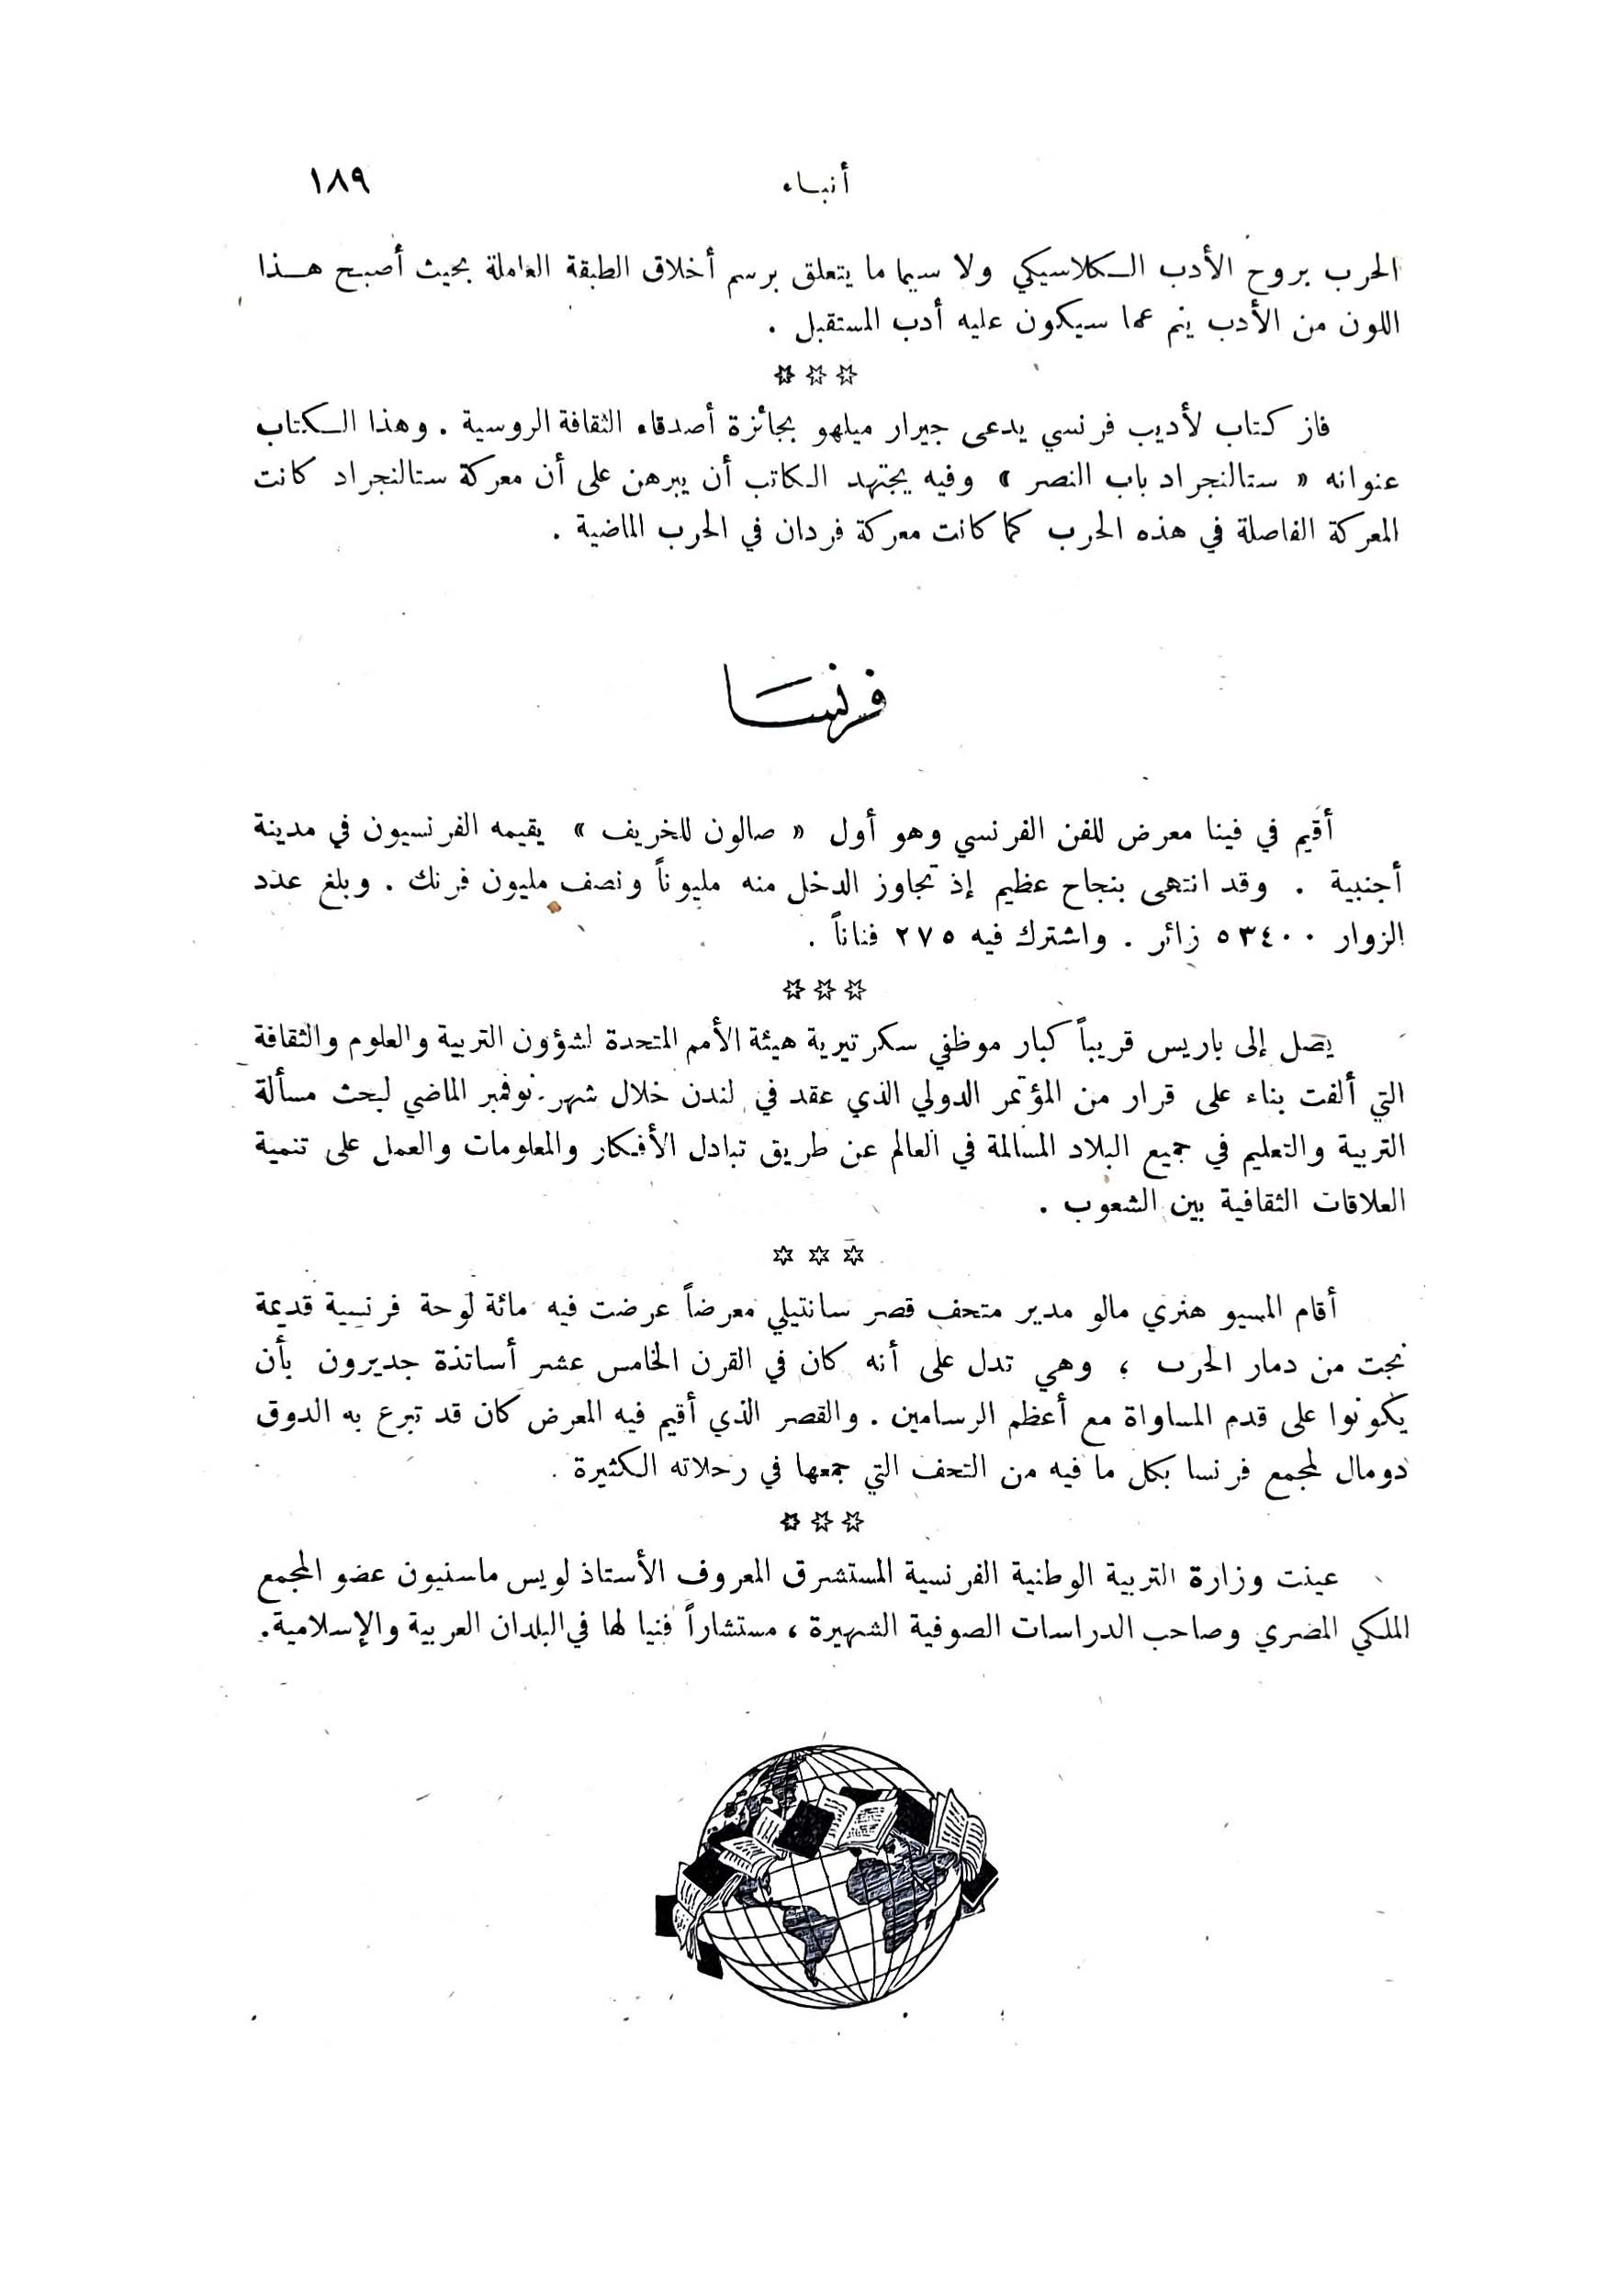 أنباء ١٨٩
الحرب بروح الأدب الكلاسيكي ولا سيما ما يتعلق برسم أخلاق الطبقة العاملة بحيث أصبح هذا
اللون من الأدب ينم عما سيكون عليه أدب المستقبل .
فاز كتاب لأديب فرنسي يدعى جيرار ميلهو بجائزة أصدقاء الثقافة الروسية . وهذا الكتاب
عنوانه « ستالنجراد باب النصر » وفيه يجتهد الكاتب أن يبرهن على أن معركة ستالنجراد كانت
المعركة الفاصلة في هذه الحرب كما كانت معركة فردان في الحرب الماضية .
فرنسا
أقيم في فينا معرض للفن الفرنسي وهو أول « صالون للخريف » يقيمه الفرنسيون في مدينة
أجنبية . وقد انتهى بنجاح عظيم إذ تجاوز الدخل منه مليوناً ونصف مليون فرنك . وبلغ عدد
الزوار ٥٣٤٠٠ زائر . واشترك فيه ٢٧٥ فناناً .
يصل إلى باريس قريباً كبار موظفي سكرتيرية هيئة الأمم المتحدة لشؤون التربية والعلوم والثقافة
التي ألفت بناء على قرار من المؤتمر الدولي الذي عقد في لندن خلال شهر نوفمبر الماضي لبحث مسألة
التربية والتعليم في جميع البلاد المسالمة في العالم عن طريق تبادل الأفكار والمعلومات والعمل على تنمية
العلاقات الثقافية بين الشعوب .
أقام المسيو هنري مالو مدير متحف قصر سانتيلي معرضاً عرضت فيه مائة لوحة فرنسية قديمة
نجت من دمار الحرب ، وهي تدل على أنه كان في القرن الخامس عشر أساتذة جديرون بأن
يكونوا على قدم المساواة مع أعظم الرسامين . والقصر الذي أقيم فيه المعرض كان قد تبرع به الدوق
دومال لمجمع فرنسا بكل ما فيه من التحف التي جمعها في رحلاته الكثيرة .
عينت وزارة التربية الوطنية الفرنسية المستشرق المعروف الأستاذ لويس ماسنيون عضو المجمع
الملكي المصري وصاحب الدراسات الصوفية الشهيرة ، مستشاراً فنيا لها في البلدان العربية والإسلامية.